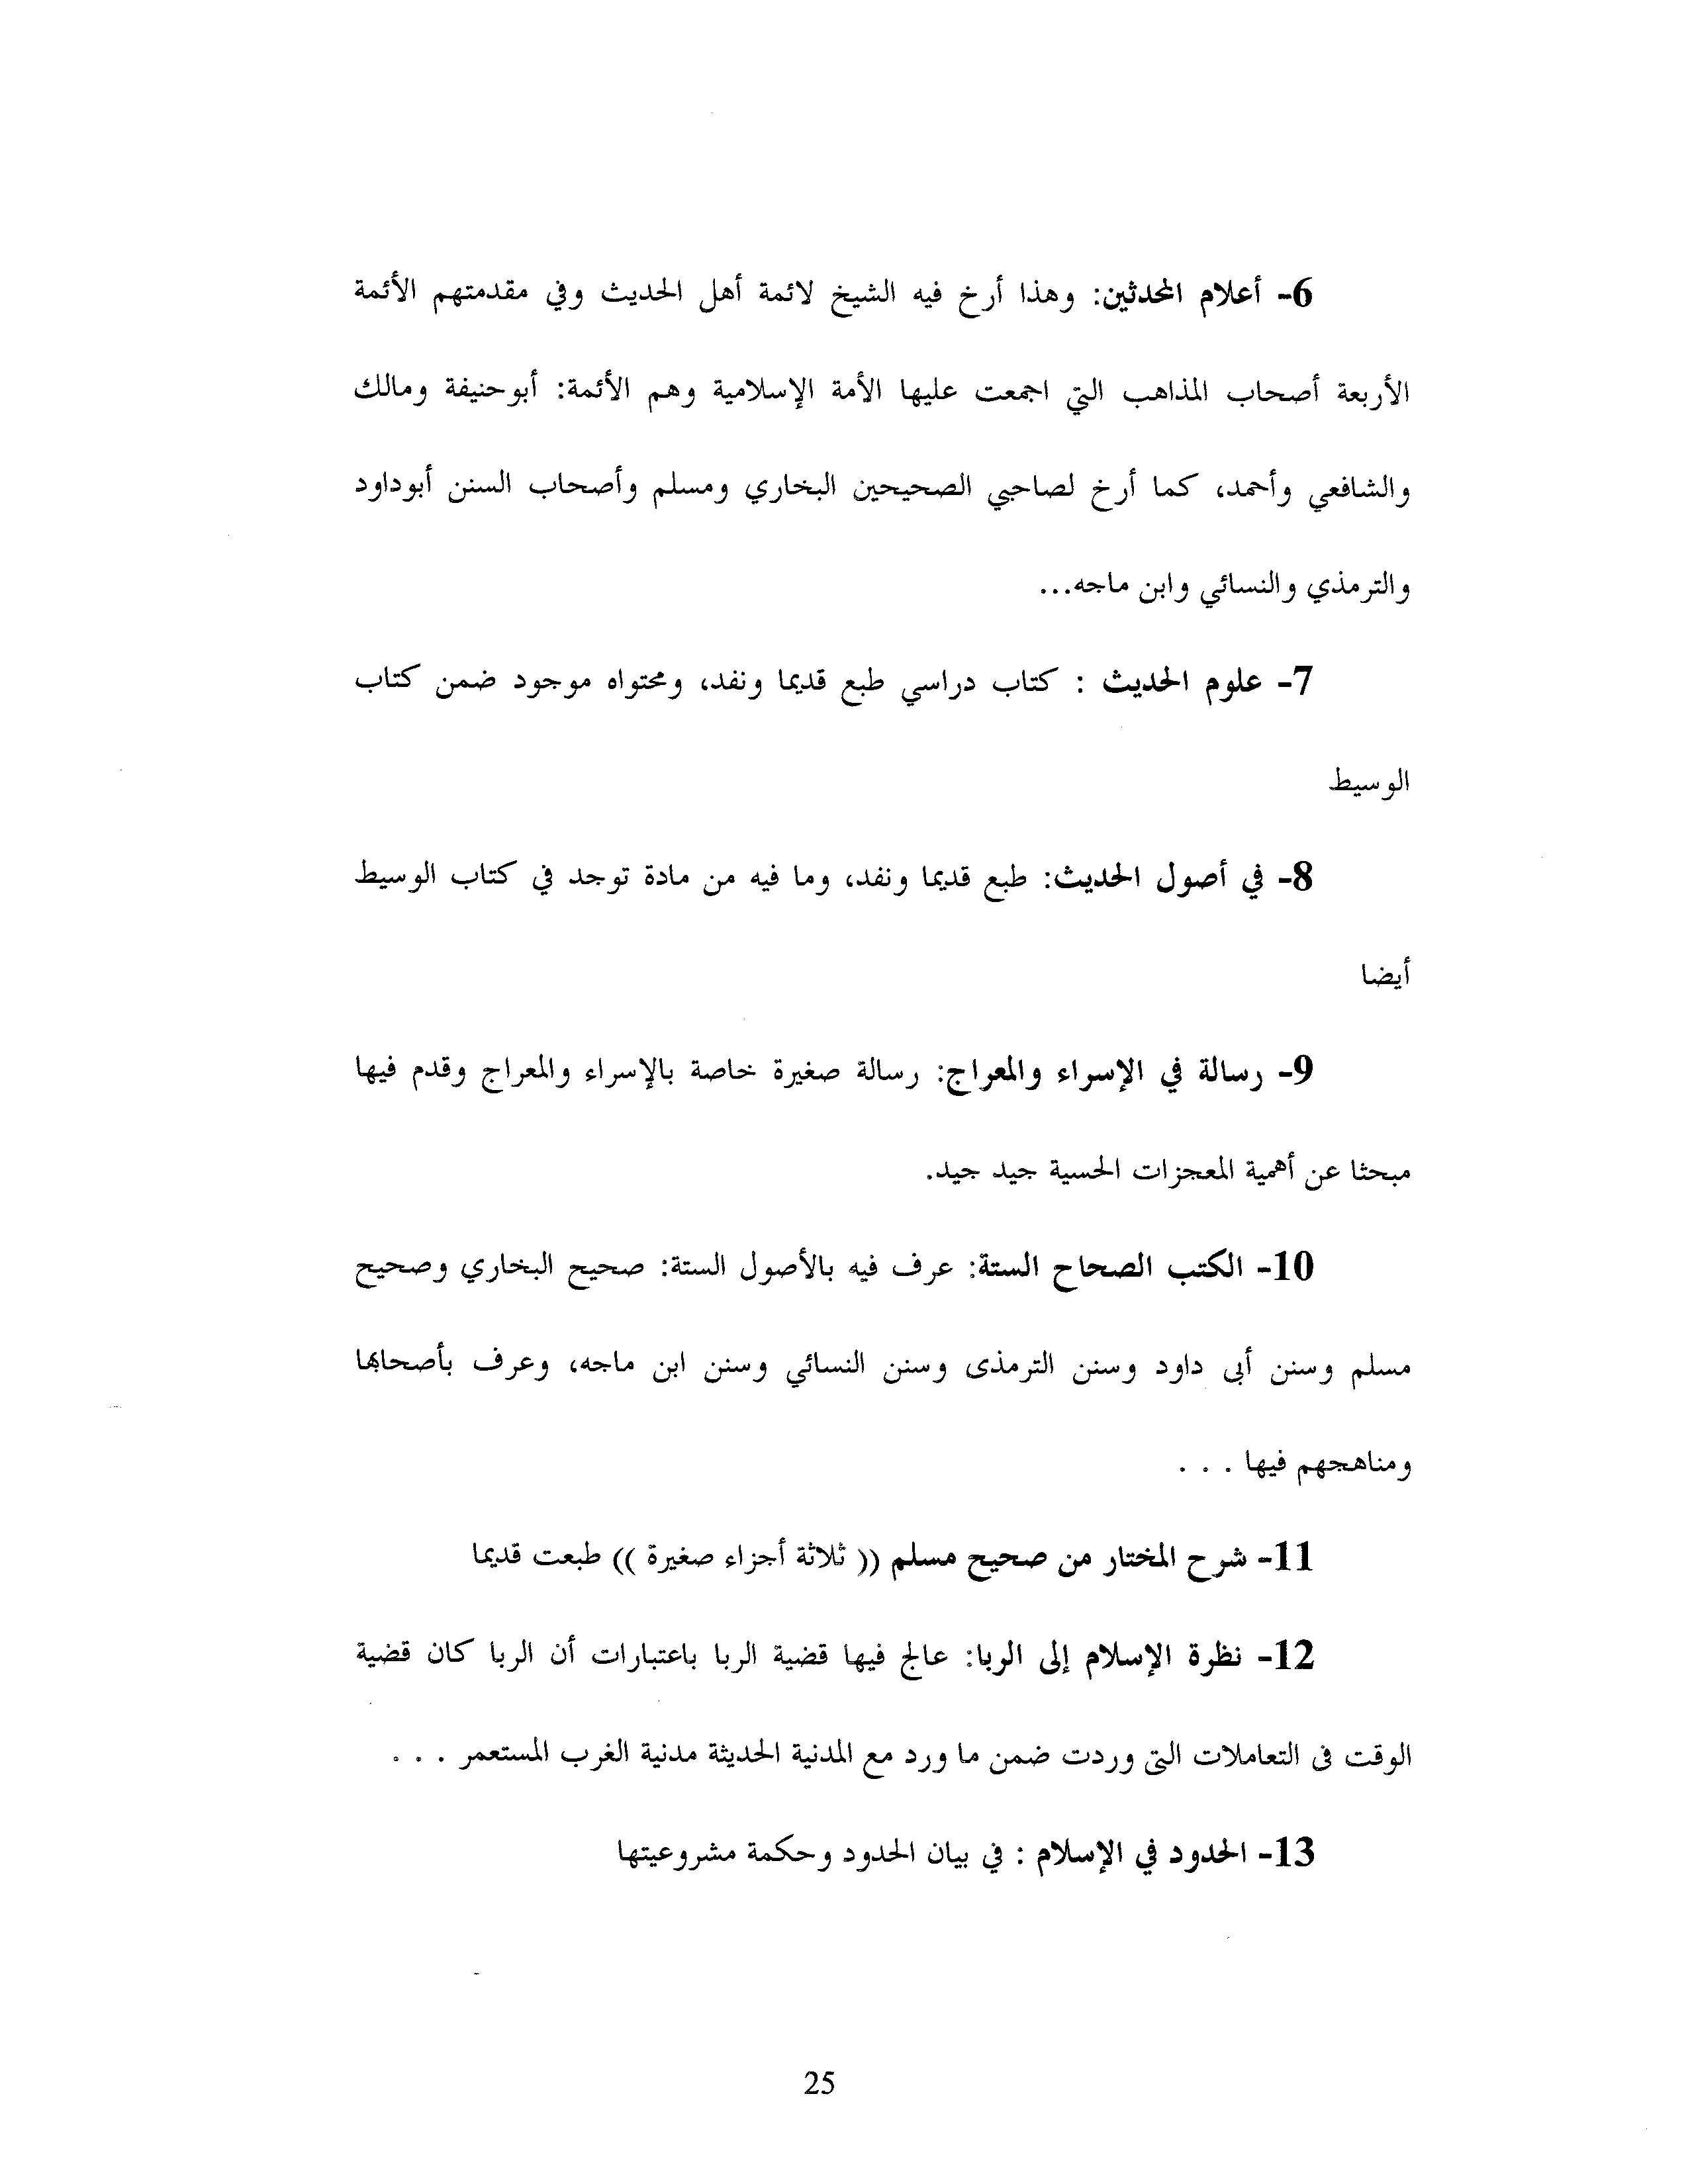 6- أعلام المحدثين: وهذا أرخ فيه الشيخ لائمة أهل الحديث وفي مقدمتهم الأئمة
الأربعة أصحاب المذاهب التي اجمعت عليها الأمة الإسلامية وهم الأئمة: أبوحنيفة ومالك
والشافعي وأحمد، كما أرخ لصاحبي الصحيحين البخاري ومسلم وأصحاب السنن أبوداود
والترمذي والنسائي وابن ماجه...
7- علوم الحديث : كتاب دراسي طبع قديما ونفد، ومحتواه موجود ضمن كتاب
الوسيط
8- في أصول الحديث: طبع قديما ونفد، وما فيه من مادة توجد في كتاب الوسيط
أيضا
9- رسالة في الإسراء والمعراج: رسالة صغيرة خاصة بالإسراء والمعراج وقدم فيها
مبحثا عن أهمية المعجزات الحسية جيد جيد.
10- الكتب الصحاح الستة: عرف فيه بالأصول الستة: صحيح البخاري وصحيح
مسلم وسنن أبى داود وسنن الترمذى وسنن النسائي وسنن ابن ماجه، وعرف بأصحابها
ومناهجهم فيها . . .
11- شرح المختار من صحيح مسلم (( ثلاثة أجزاء صغيرة )) طبعت قديما
12- نظرة الإسلام إلى الربا: عالج فيها قضية الربا باعتبارات أن الربا كان قضية
الوقت فى التعاملات التى وردت ضمن ما ورد مع المدنية الحديثة مدنية الغرب المستعمر . . .
13- الحدود في الإسلام : في بيان الحدود وحكمة مشروعيتها
25